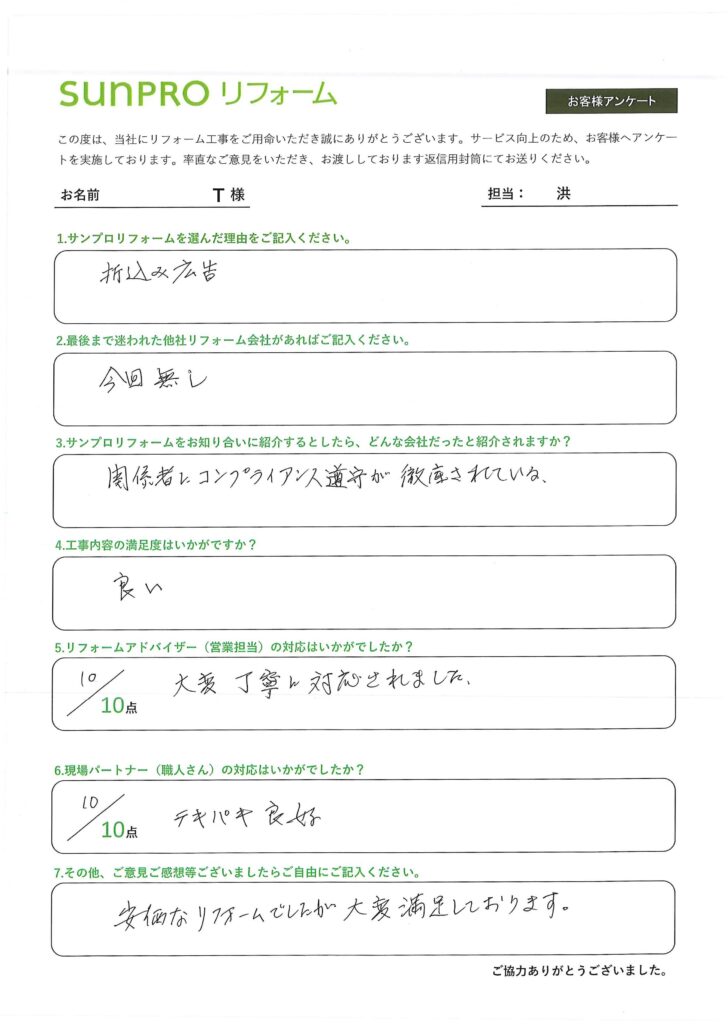 sunPRO リフォーム
お客様アンケート
この度は、当社にリフォーム工事をご用命いただき誠にありがとうございます。サービス向上のため、お客様へアンケー
トを実施しております。率直なご意見をいただき、お渡ししております返信用封筒にてお送りください。
お名前 T 様 担当： 洪
1.サンプロリフォームを選んだ理由をご記入ください。
折込み広告
2.最後まで迷われた他社リフォーム会社があればご記入ください。
今回無し
3.サンプロリフォームをお知り合いに紹介するとしたら、どんな会社だったと紹介されますか？
関係者にコンプライアンス遵守が徹底されている、
4.工事内容の満足度はいかがですか？
良い
5.リフォームアドバイザー（営業担当）の対応はいかがでしたか？
10/10点 大変丁寧に対応されました、
6.現場パートナー（職人さん）の対応はいかがでしたか？
10/10点 テキパキ良好
7.その他、ご意見ご感想等ございましたらご自由にご記入ください。
安価なリフォームでしたが大変満足しております。
ご協力ありがとうございました。